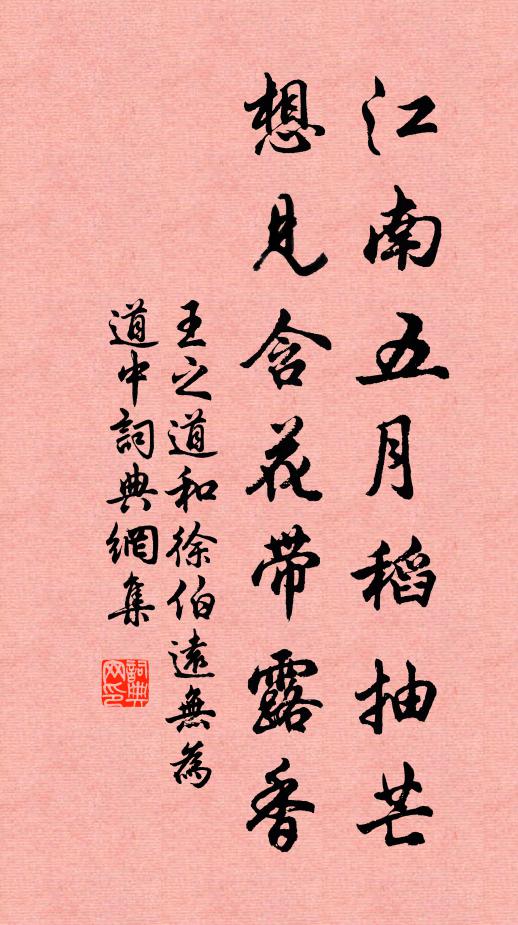 江南五月稻抽芒
想見含花帶露香
王之道和徐伯遠無為
道中詞典網集
詞典
网印